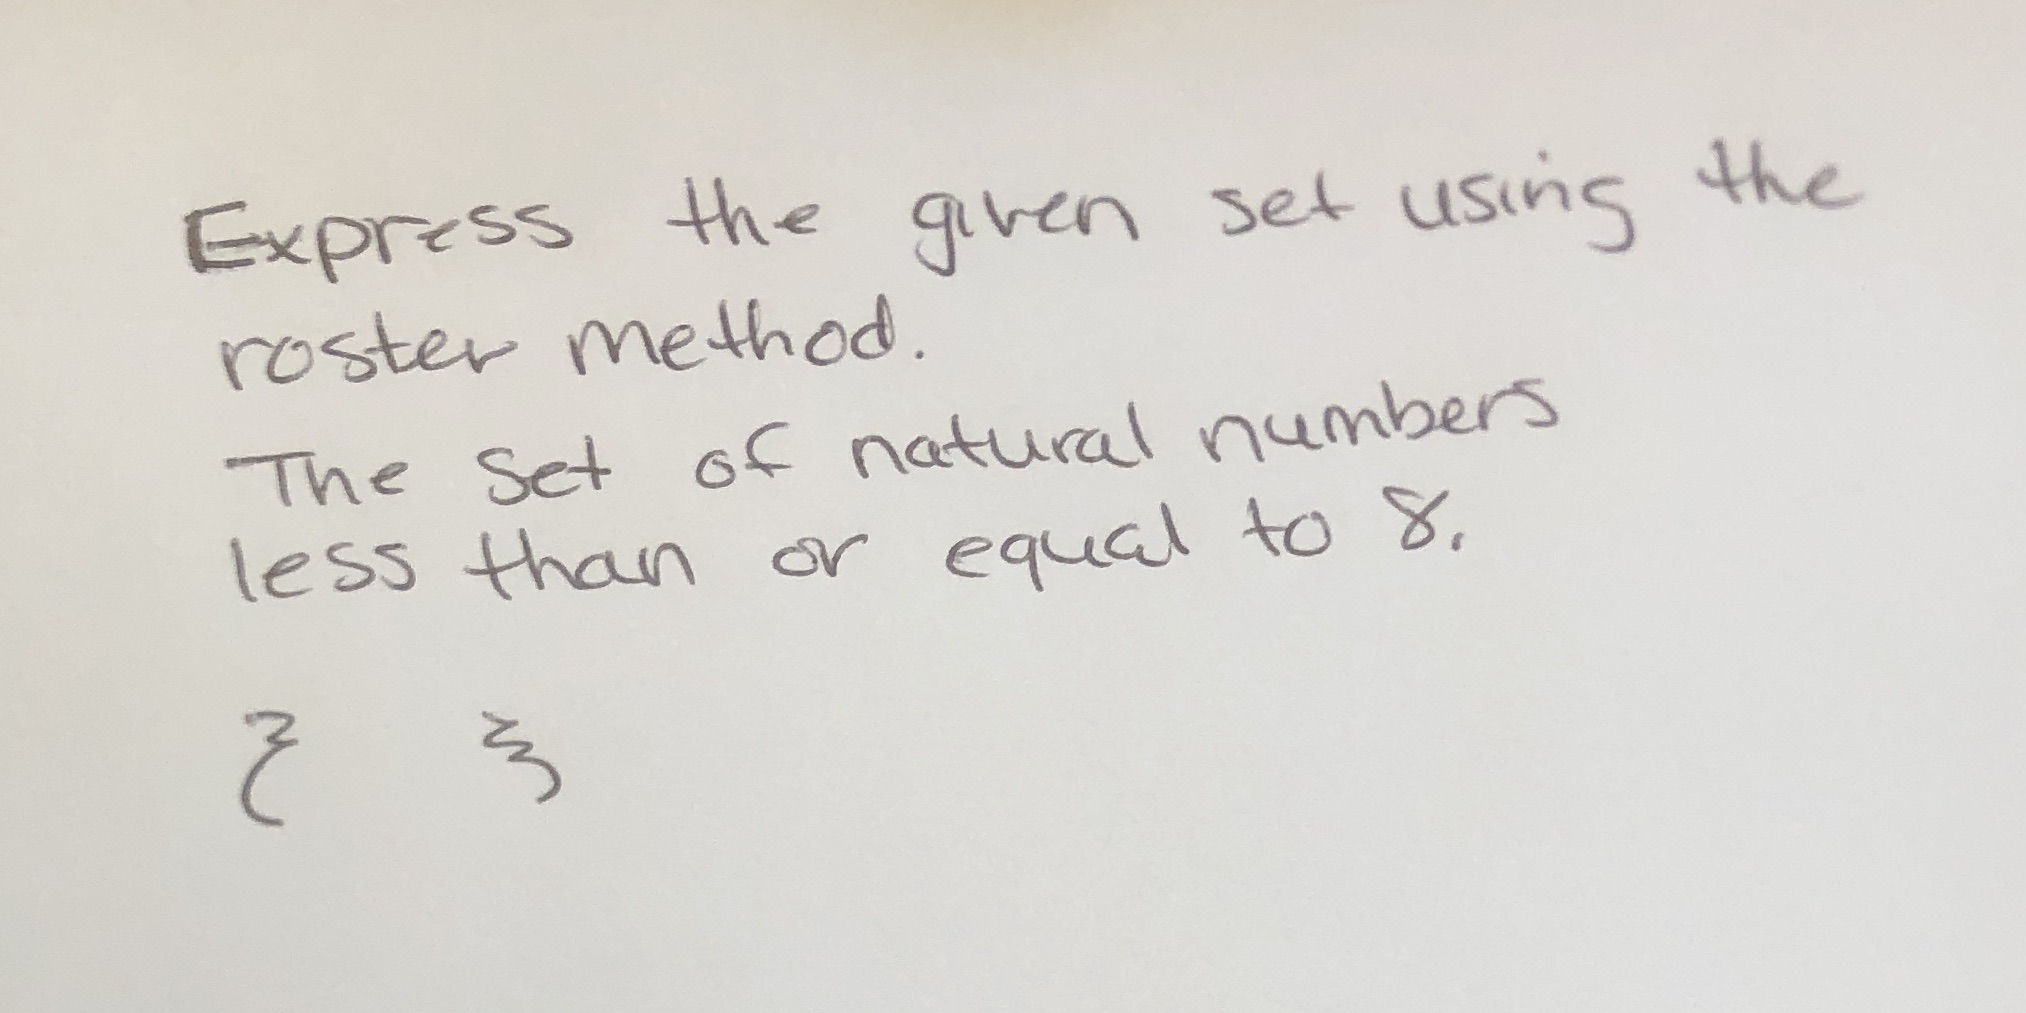 Express the given set using the
roster method.
The set of natural numbers
less than or equal to 8.
{ }